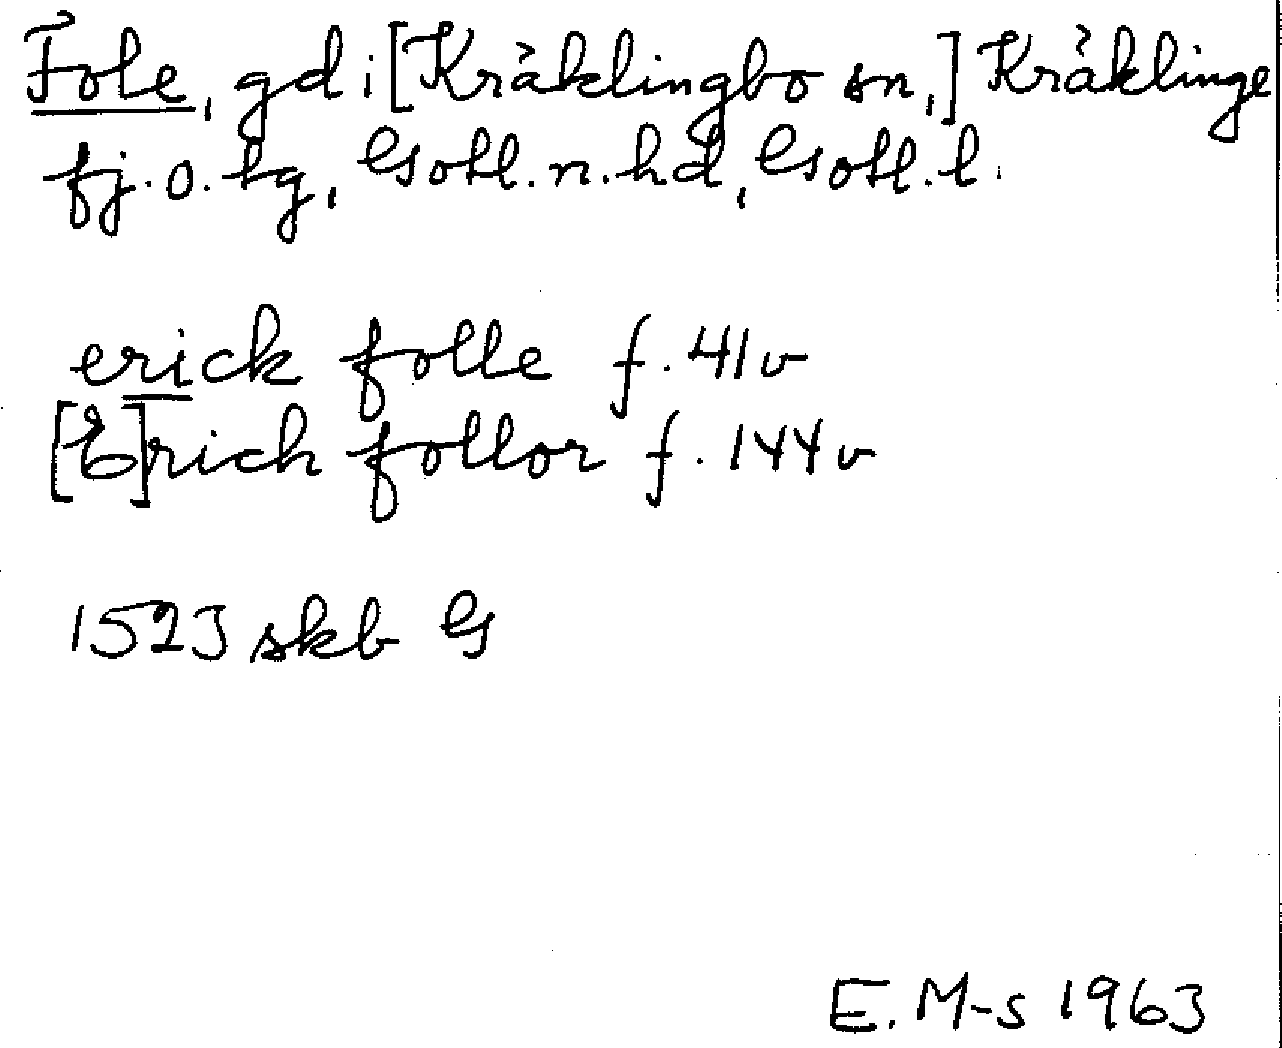 Fole, gd i [Kräklingbo sn,] Kräklinge
fj. o. tg, Gotl. n. hd, Gotl. l.
erick folle f. 41v
[E]rich follor f. 144v
1523 skb G
E. M-s 1963